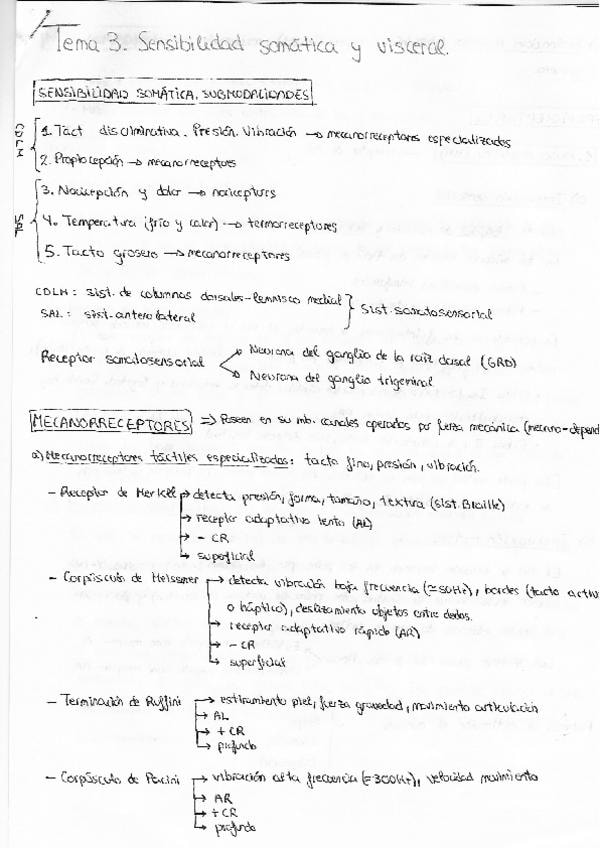 Tema 3. Sensibilidad somática y visceral.
SENSIBILIDAD SOMÁTICA, SUBMODALIDADES
CDLM
1. Tact discriminativa. Presión. Vibración → mecanorreceptores especializados
2. Propiocepción → mecanorreceptores
SAL
3. Nocicepción y dolor → nociceptores
4. Temperatura (frío y calor) → termorreceptores
5. Tacto grosero → mecanorreceptores
CDLM: sist. de columnas dorsales-lemnisco medial
SAL: sist. anterolateral
Sist. somatosensorial
Receptor somatosensorial
Neurona del ganglio de la raíz dorsal (GRD)
Neurona del ganglio trigeminal
MECANORRECEPTORES ⇒ Poseen en su mb. canales operados por fuerza mecánica (mecano-depend
a) Mecanorreceptores táctiles especializados: tacto fino, presión, vibración.
- Receptor de Merkell → detecta presión, forma, tamaño, textura (sist. Braille)
→ receptor adaptativo lento (AL)
→ - CR
→ superficial
- Corpúsculo de Meissner → detecta vibración baja frecuencia (≃50Hz), bordes (tacto activ
o háptico), deslizamiento objetos entre dedos.
→ receptor adaptativo rápido (AR)
→ - CR
→ superficial
- Terminación de Ruffini → estiramiento piel, fuerza gravedad, movimiento articulación
→ AL
→ + CR
→ profundo
- Corpúsculo de Pacini → vibración alta frecuencia (≃300Hz), velocidad movimiento
→ AR
→ + CR
→ profundo